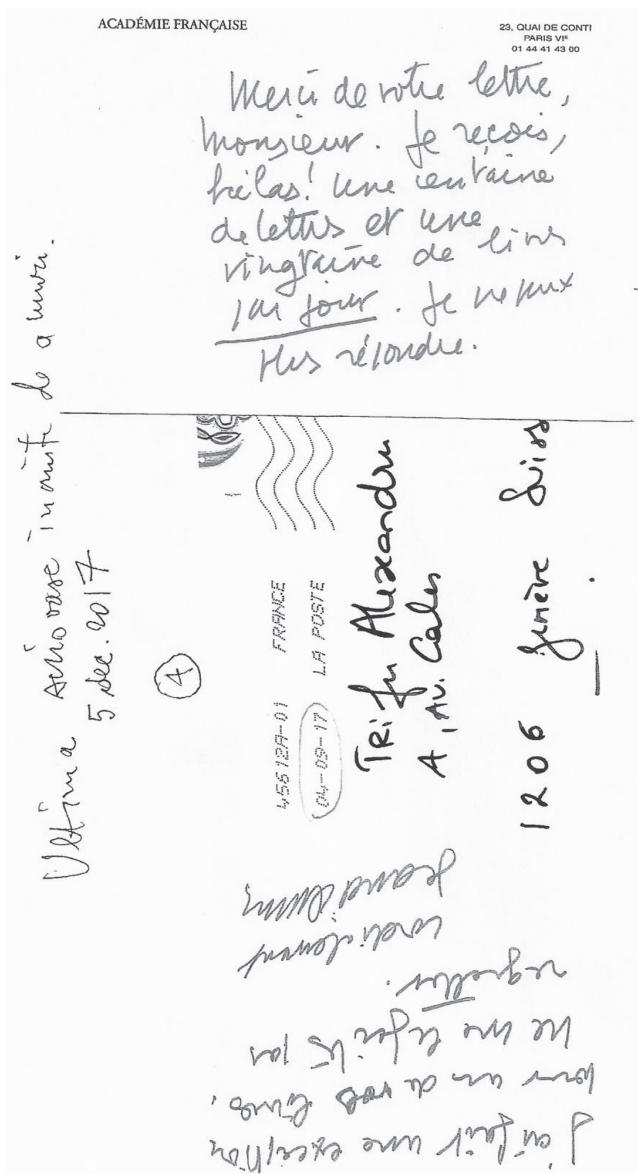 ACADÉMIE FRANÇAISE
23, QUAI DE CONTI
PARIS VIᵉ
01 44 41 43 00
Merci de votre lettre,
Monsieur. Je reçois,
hélas! une centaine
de lettres et une
vingtaine de livres
par jour. Je ne peux
plus répondre.
Ultima scrisoare înainte de a muri.
5 dec. 2017
4
45612A-01 FRANCE
04-09-17 LA POSTE
Trifu Alexandru
Av.
1206 Genève Suisse
J'ai fait une exception
pour un de vos livres.
Ne me le faites pas
regretter.
Cordialement